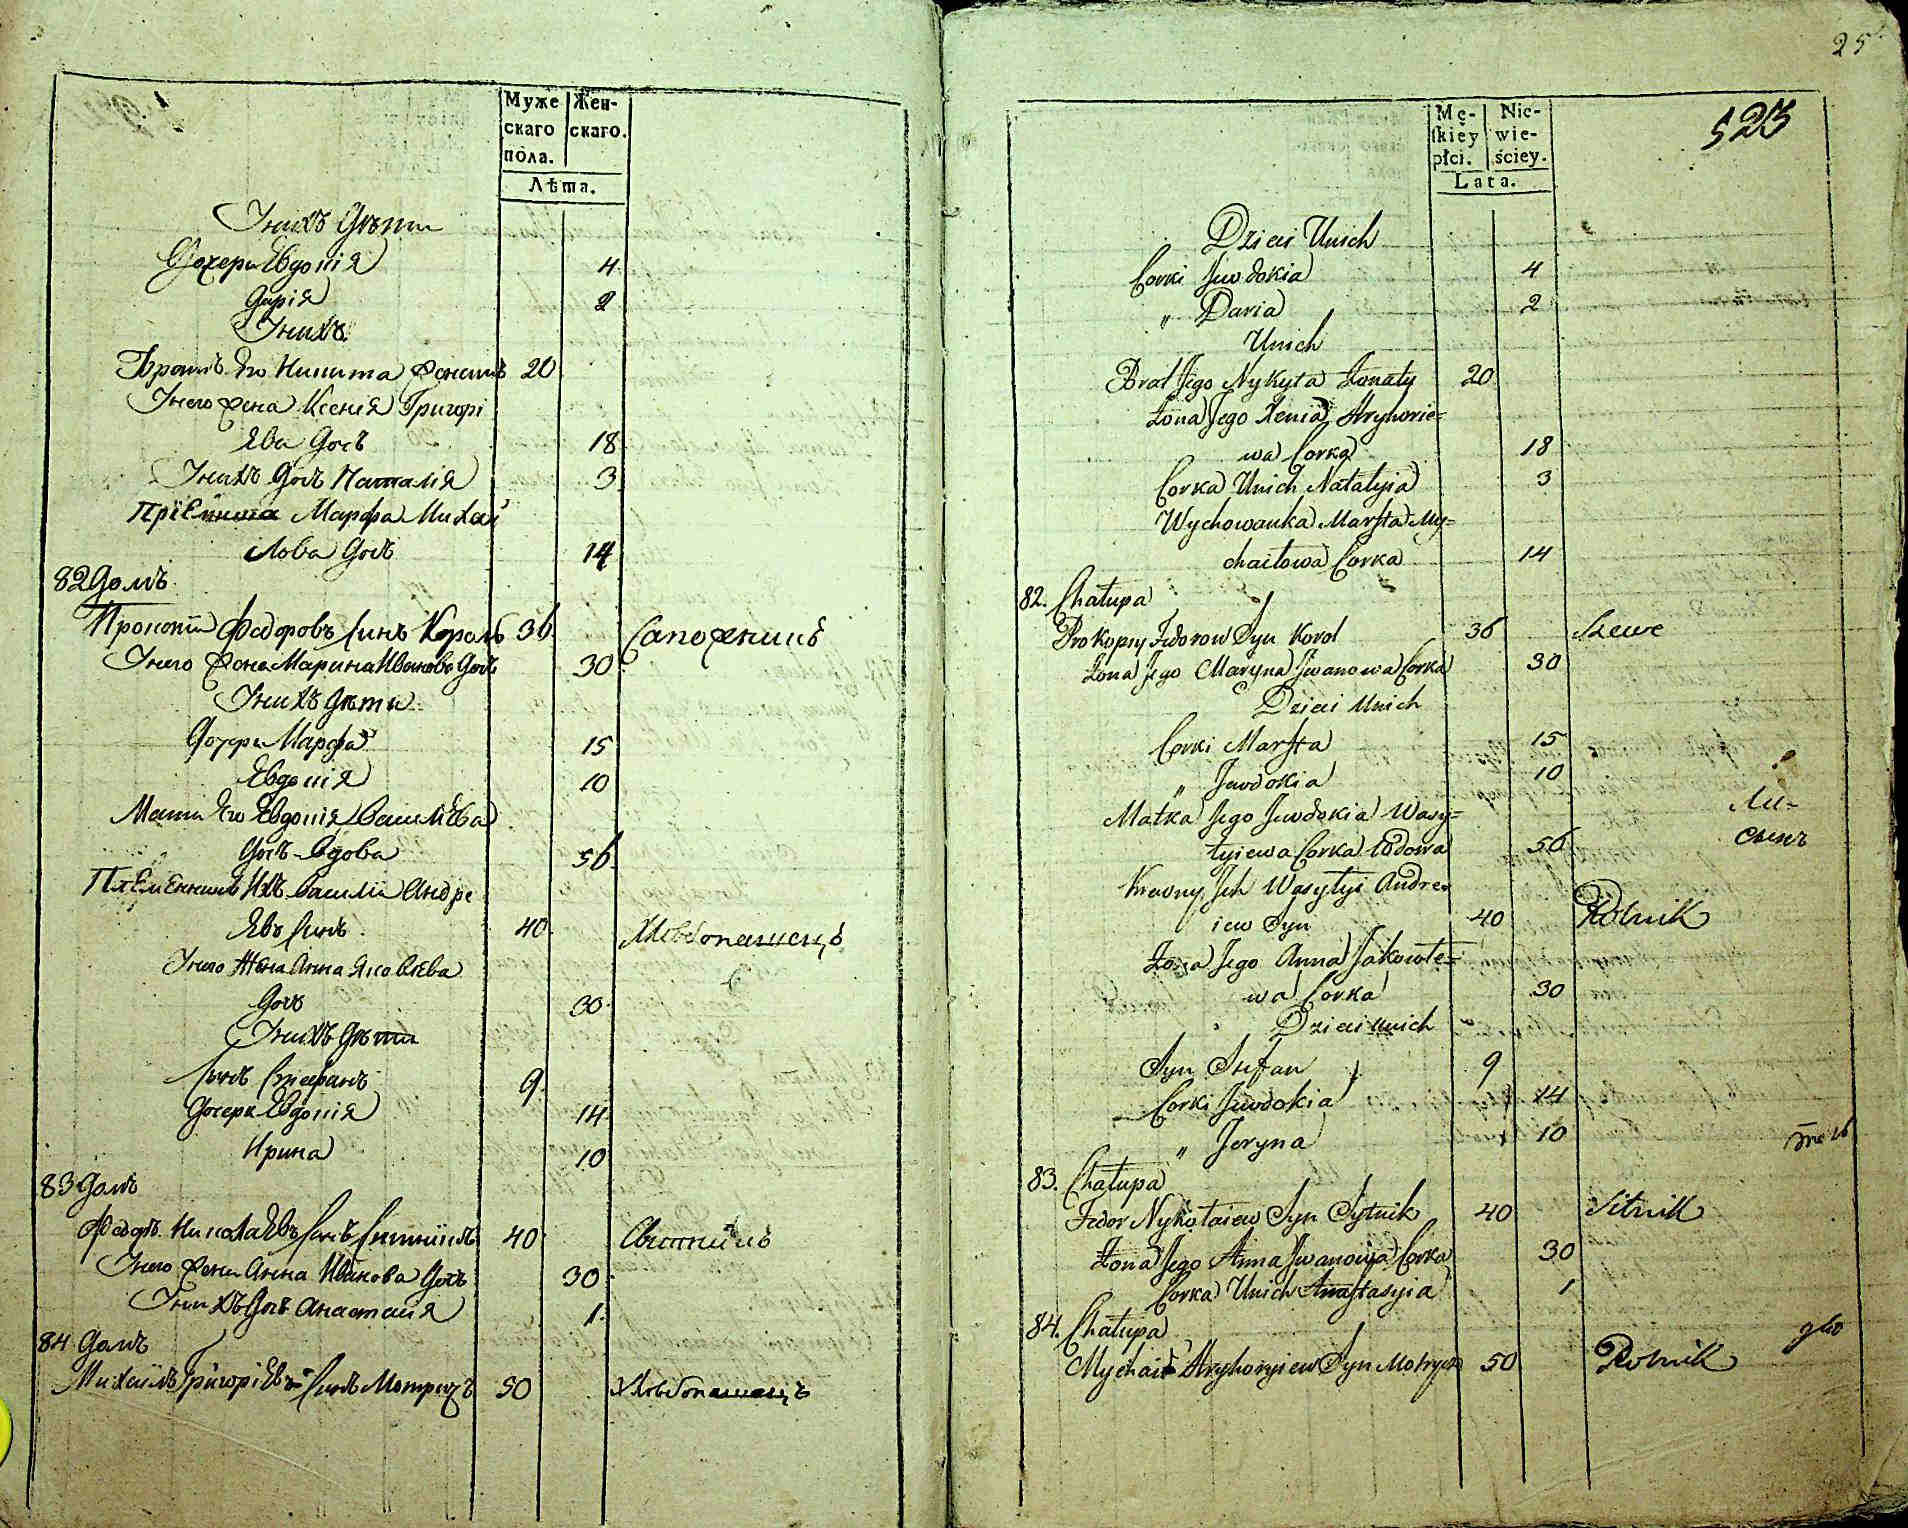 Муже
скаго
пола.
Жен-
скаго.
Лѣта.
У нихъ Дѣти
Дочери Евдокія 4
Дарія 2
У нихъ
Братъ Его Никита Женатъ 20
У него жена Ксенія Григорі
Ева Дочь 18
У нихъ Дочь Наталія 3
Пріемыша Марфа Михай
лова Дочь 14
82 Домъ
Прокопій Федоровъ Сынъ Король 36 Сапожникъ
У него Жена Марина Иванова Дочь 30
У нихъ Дѣти
Дочери Марфа 15
Евдокія 10
Мати Его Евдокія Василіева
Дочь Вдова 56
Племенникъ Ихъ Василій Андре
Евъ Сынъ 40 Хлѣбопашецъ
У него Жена Анна Яковлева
Дочь 30
У нихъ Дѣти
Сынъ Стефанъ 9
Дочери Евдокія 14
Ирина 10
83 Домъ
Федоръ Николаевъ Сынъ Ситникъ 40 Ситникъ
У него Жена Анна Иванова Дочь 30
У нихъ Дочь Анастасія 1
84 Домъ
Михаилъ Григоріевъ Сынъ Мотричъ 50 Хлѣбопашецъ
25
523
Mę-
skiey
płci.
Nie-
wie-
ściey.
Lata.
Dzieci Unich
Corki Jewdokia 4
" Daria 2
Unich
Brat Jego Nykyta Żonaty 20
Żona Jego Xenia Hryhorie=
wa Corka 18
Corka Unich Natalyia 3
Wychowanka Marfta My=
chaiłowa Corka 14
82. Chałupa
Prokopiy Fedorow Syn Korol 36 Szewc
Żona Jego Maryna Jwanowa Corka 30
Dzieci Unich
Corki Marfta 15
" Jewdokia 10
Matka Jego Jewdokia Wasy=
łyiewa Corka Wdowa 56
Krewny Jch Wasylyi Andre
iew Syn 40 Rolnik
Żona Jego Anna Jakowle=
wa Corka 30
Dzieci unich
Syn Stefan 9
Corki Jewdokia 14
" Jeryna 10
83. Chałupa
Fedor Nykołaiew Syn Sytnik 40 Sitnik
Żona Jego Anna Jwanowa Corka 30
Corka Unich Anastasyia 1
84. Chałupa
Mychaił Hryhoryiew Syn Motrycz 50 Rolnik
Ли-
сынъ
тель